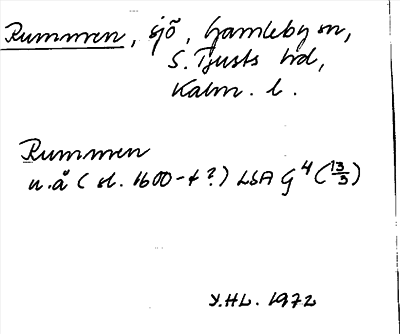 Rummen, sjö, Gamleby sn,
S. Tjusts hd,
Kalm. l.
Rummen
u.å (sl. 1600-t?) LSA G4 (13/3)
Y.HL. 1972